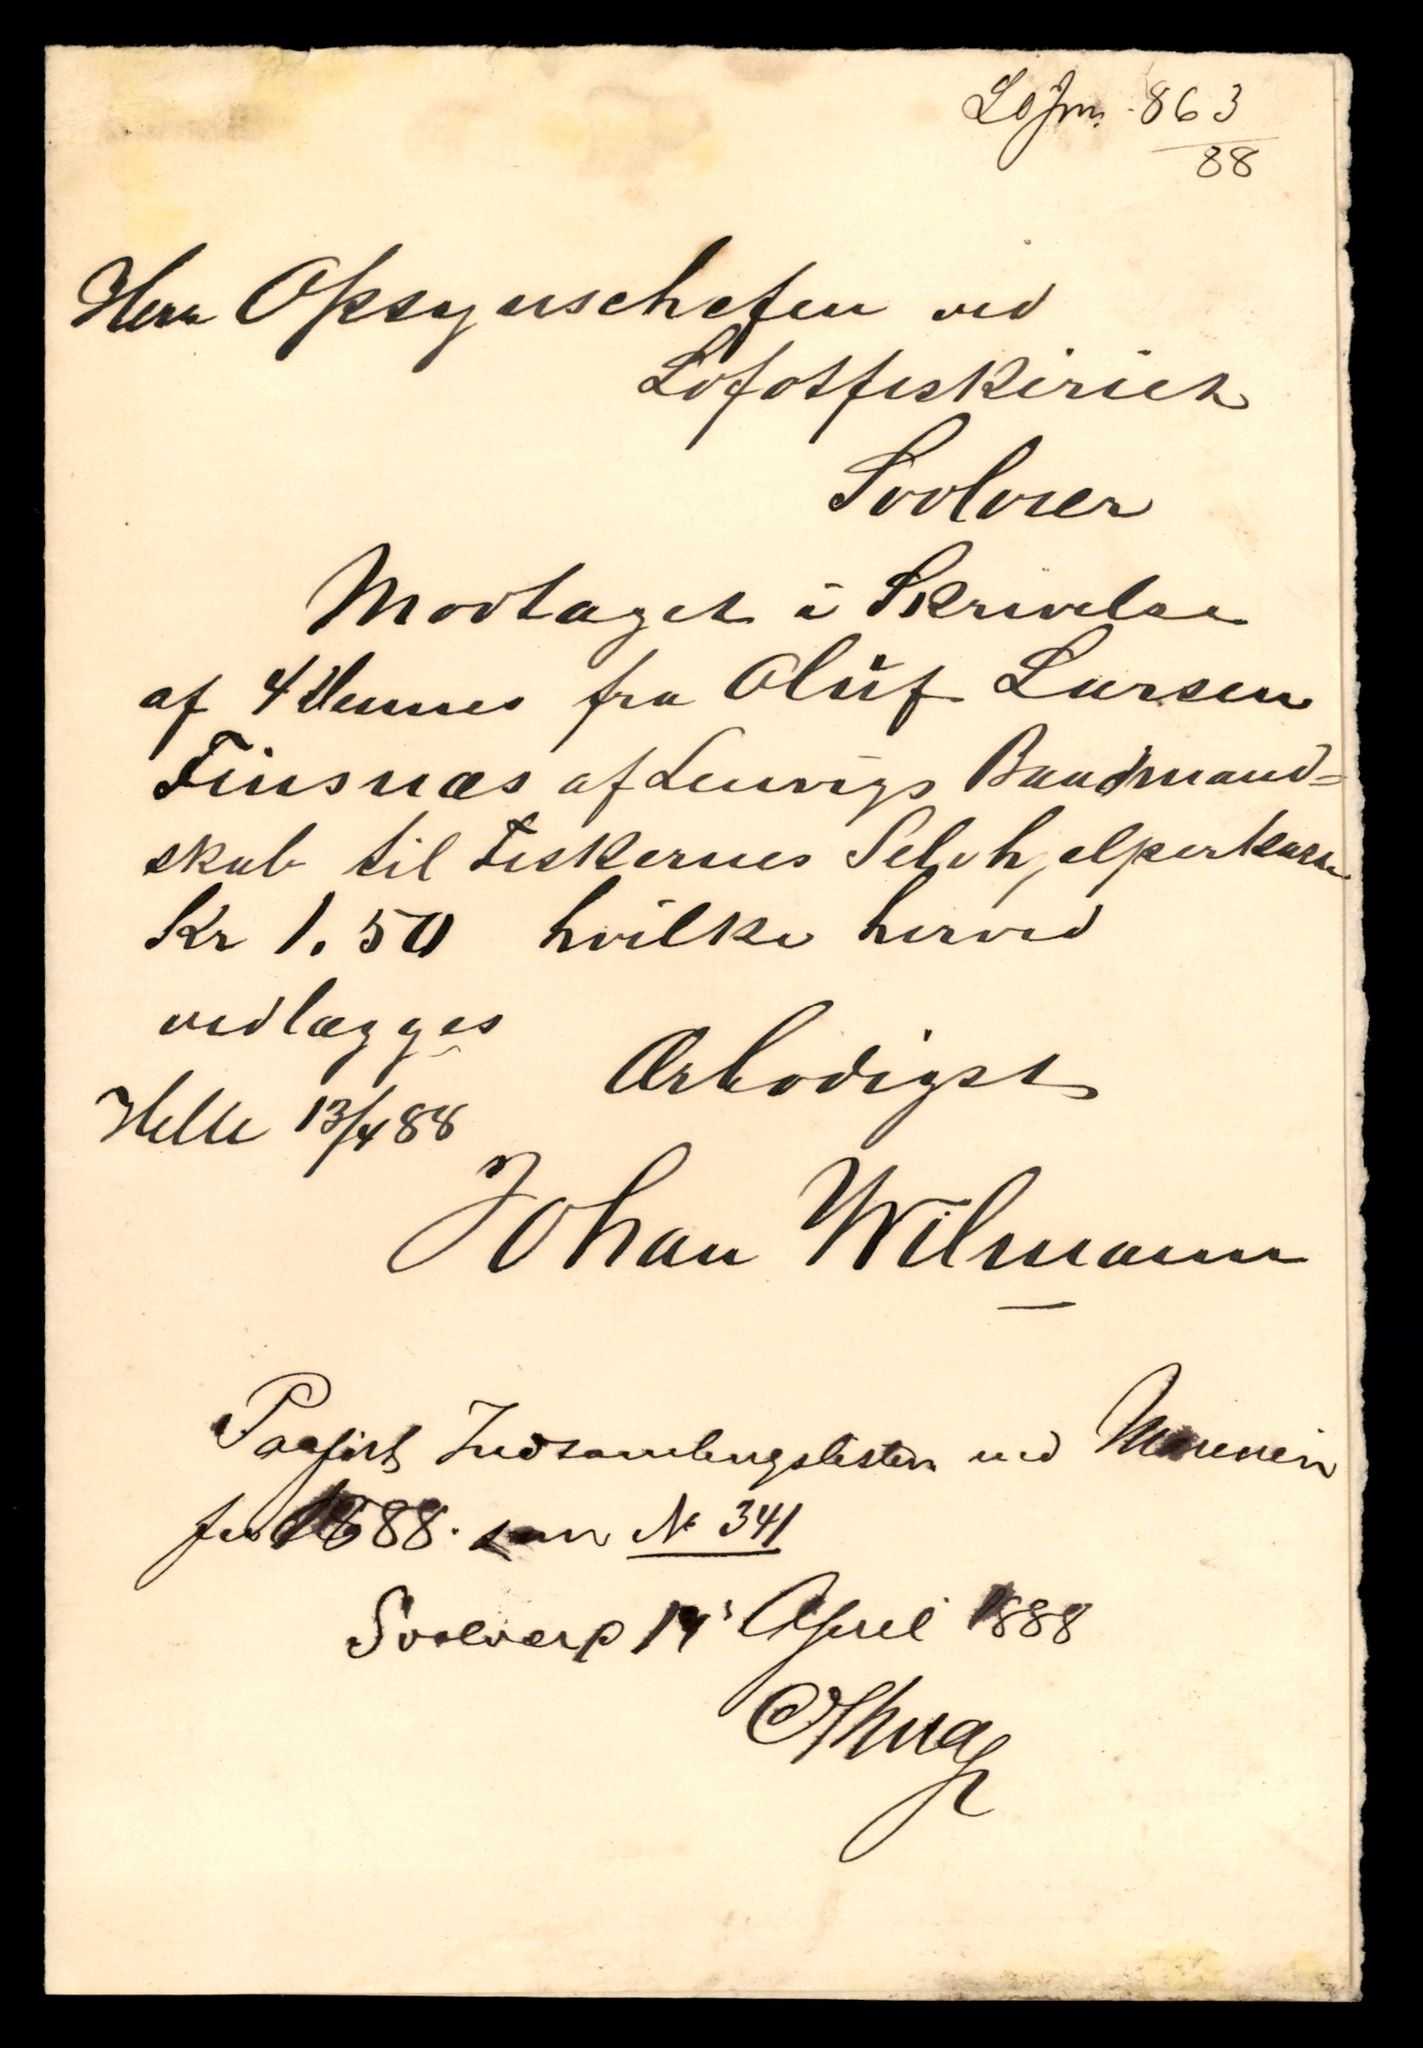 LoJrn. 863
88
Herr Opsynschefen ved
Lofotfiskeriet
Svolvær
Modtaget i Skrivelse
af 4 dennes fra Oluf Larsen
Finsnæs af Lenvigs Baadmand=
skab til Fiskernes Selvhjelperkasse
Kr 1.50 hvilke herved
vedlægges
Ærbødigst
Helle 13/4 88
Johan Wilmann
Paaført Indsamlingslisten ved
for 1888. som № 341
Svolvær p 14' April 1888